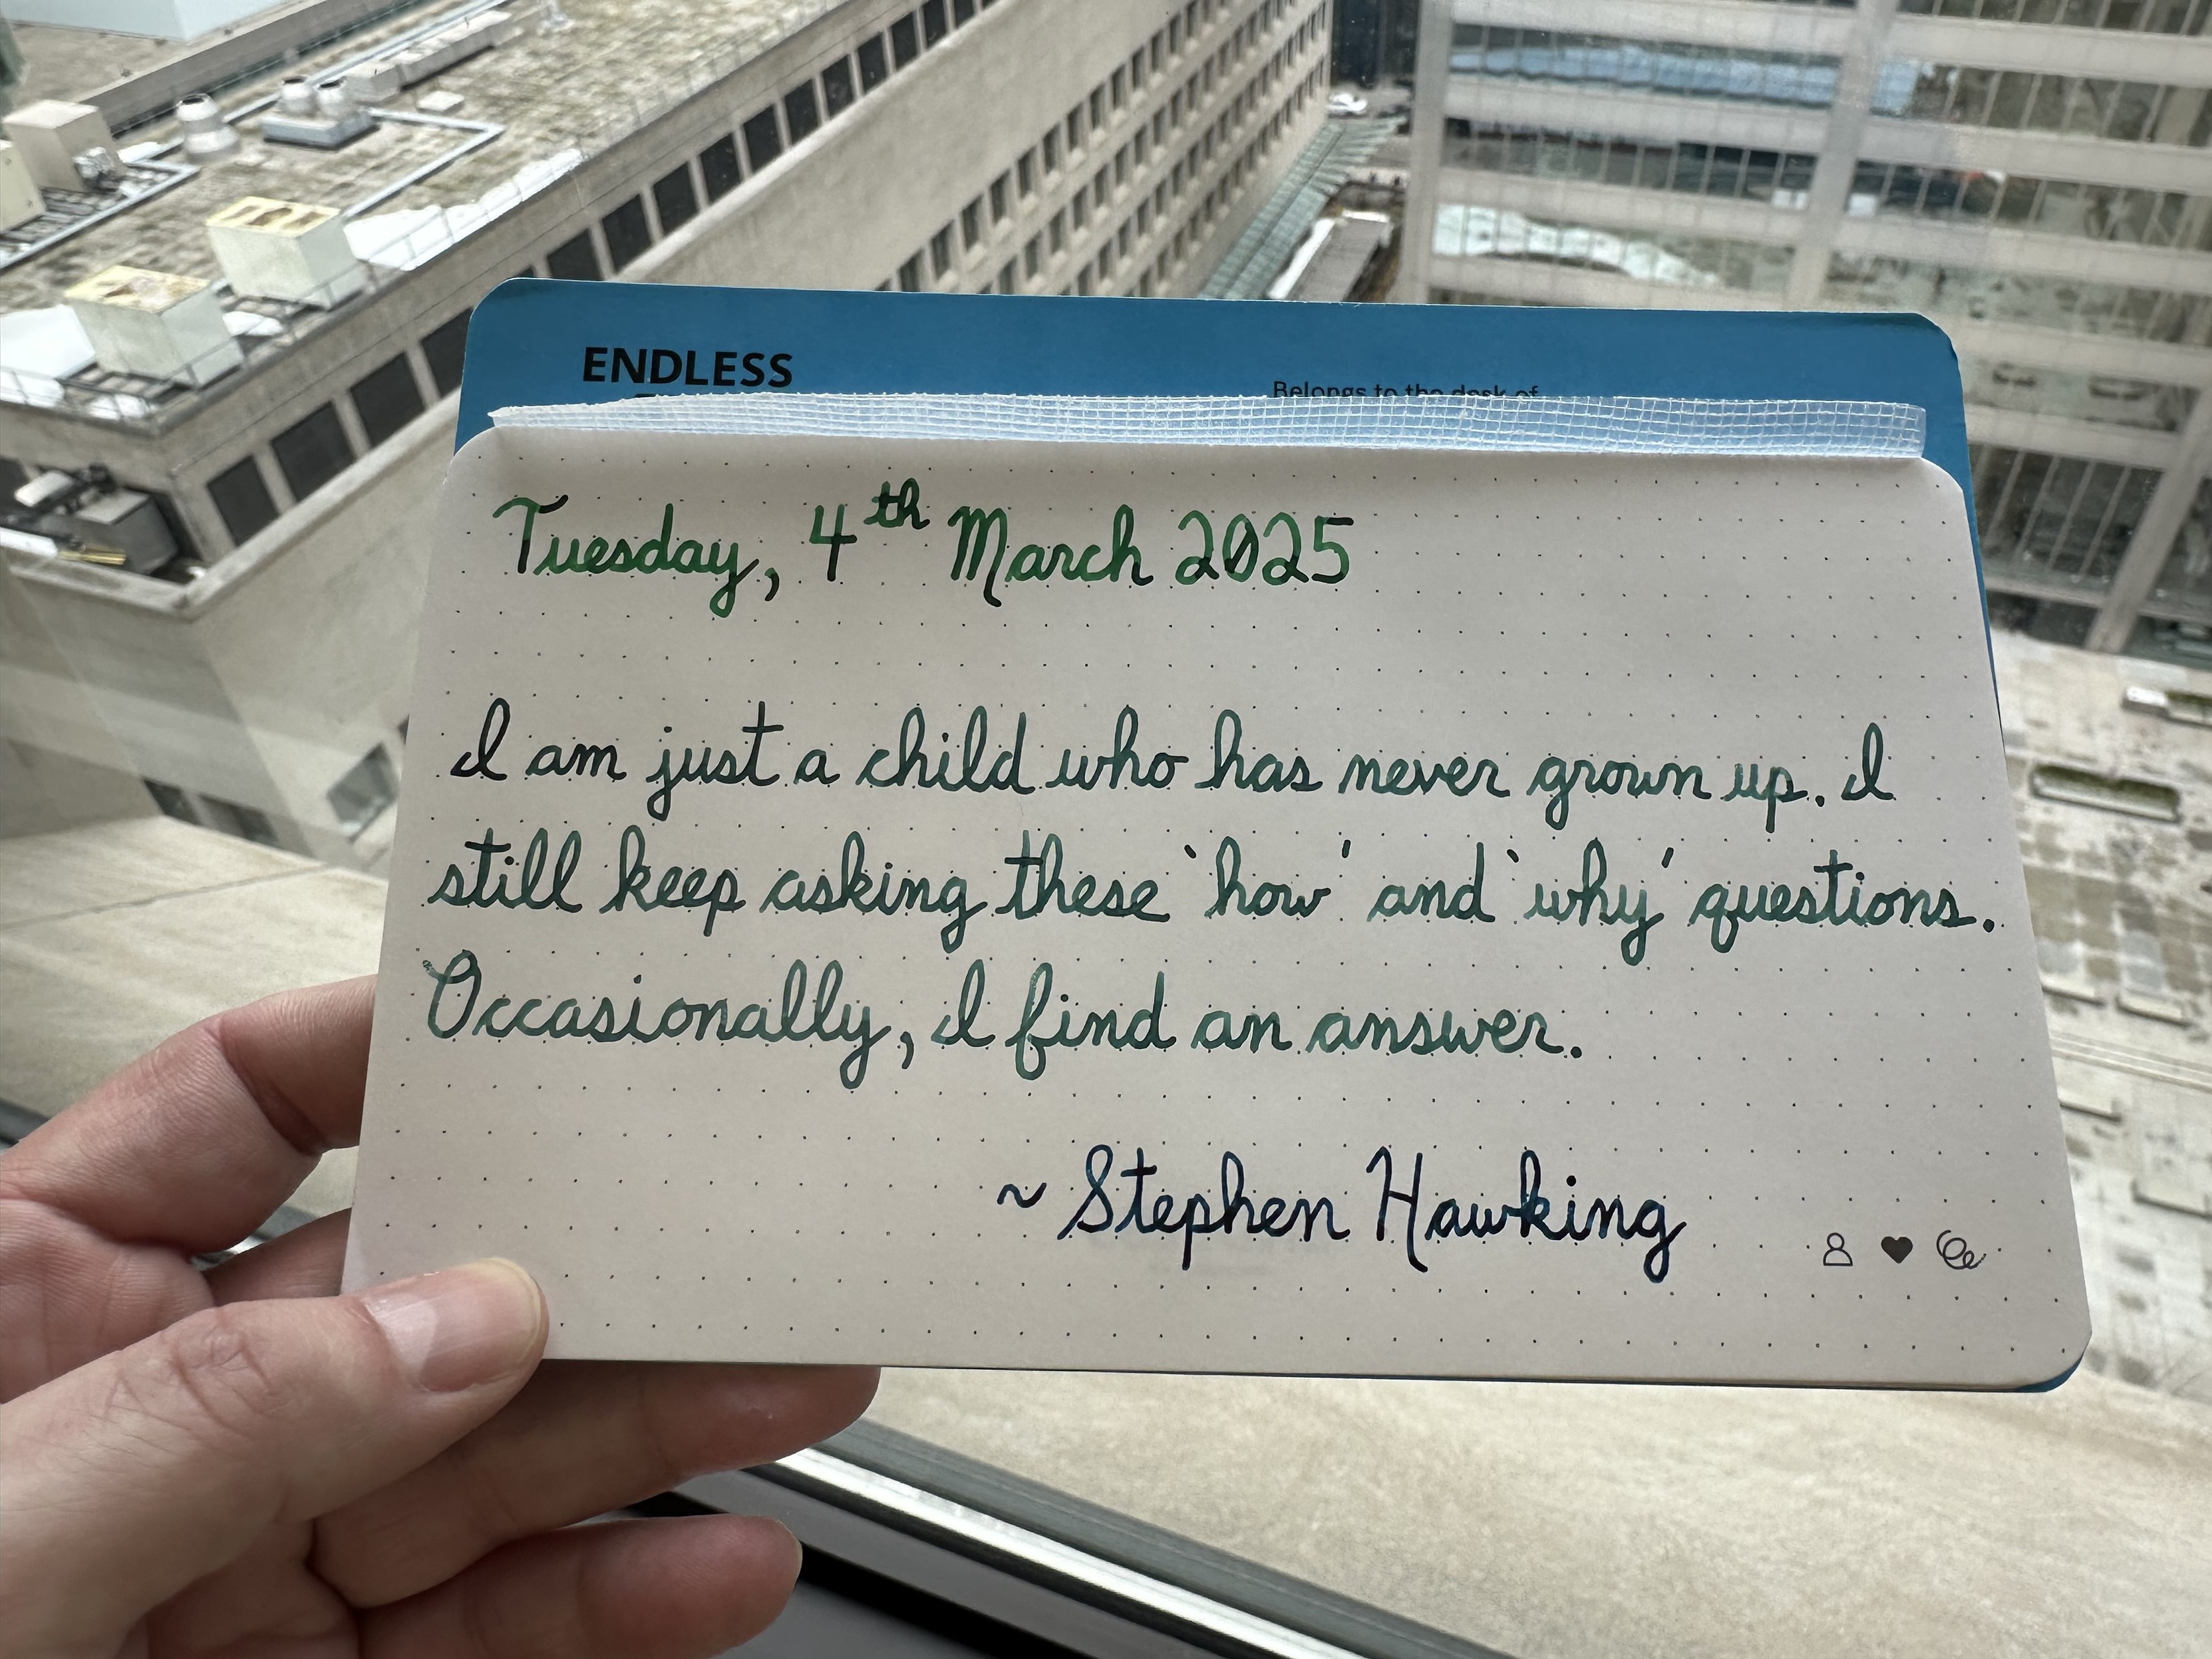 ENDLESS
Belongs to the desk of
Tuesday, 4th March 2025
I am just a child who has never grown up. I
still keep asking these `how' and `why' questions.
Occasionally, I find an answer.
~ Stephen Hawking